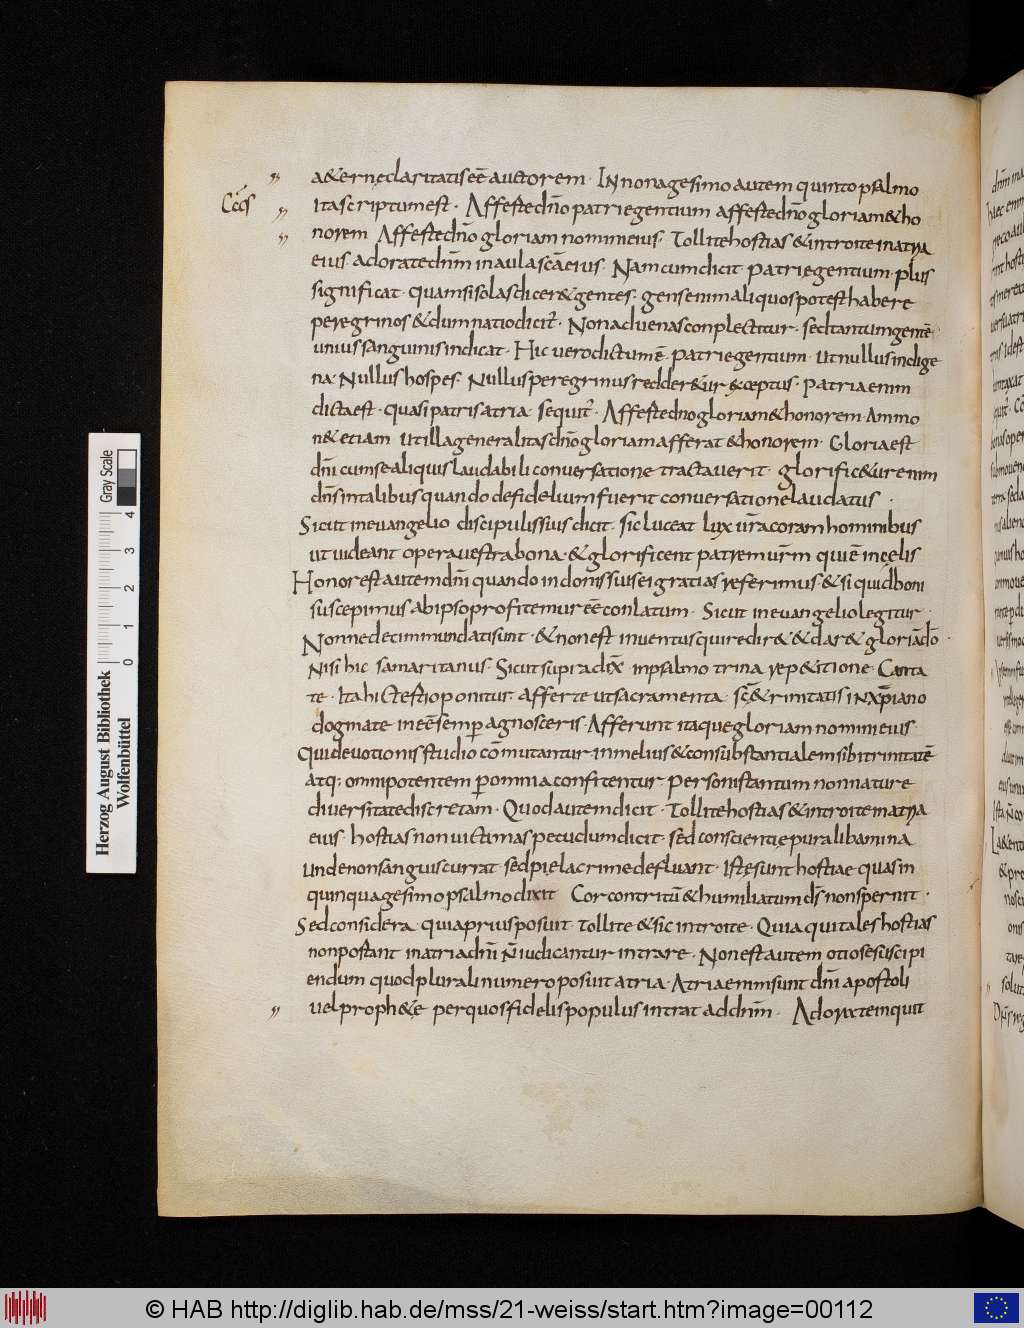 a&erneclaritatiseē auctorem · IN nonagesimo autem quinto psalmo
Itascriptumest · Affestedn̄o patriegentium affestedn̄o gloriam&ho
norem Affestedn̄o gloriam nominieius · Tollitehostias &introite inatria
eius · adoratedn̄m inaulascāeius · Namcumdicit patriegentium · plus
significat · quamsisolasdicer&gentes · gensenimaliquospotesthabere
peregrinos &dumnatiodicit̄ · Nonaduenasconplectitur · sedtantumgentē
uniussanguinisindicat · Hic verodictumē patriegentium · Utnullusindige
na · Nullushospes · Nullusperegrinusredder&ur &ceptus · Patriaenim
dictaest · quasipatrisatria sequit̄ · Affestedn̄ogloriam&honorem · Ammo
n&etiam Utillageneralitasdn̄ogloriamafferat &honorem · Gloriaest
dn̄i cumsealiquislaudabili conuersatione tractauerit · glorific&urenim
dn̄sintalibusquando defideliumfuerit conuersationelaudatus ·
Sicut ineuangelio discipulissuisdicit · sic luceat lux ur̄acoramhominibus
ut uideant operauestrabona · &glorificent patremur̄m quiē incelis
Honorestautemdn̄i quando indonissuiseigratias referimus · &si quidboni
suscepimus abipsoprofitemureē conlatum · Sicut ineuangeliolegitur ·
Nonnedecimmundatisunt · &nonest inuentusquiredir& &dar& gloriādō ·
Nisi hic samaritanus · Sicutsupradix̄ inpsalmo trina rep&itione Canta
te · Itahictestioponitur afferte utsacramenta sc̄&rinitatis inxp̄iano
dogmate ineēsemper agnosceris · Afferunt itaquegloriamnominieius
Quideuotionisstudio cōmutantur · inmelius&consubstantialemsibitrinitatē
atq: omnipotentem p̄omnia confitentur · personistantum nonnature
diuersitatediscretam · Quodautemdicit · Tollitehostias &introiteinatria
eius · hostias nonuictimaspecudumdicit · sedconscientiepuralibamina
undenonsanguiscurrat · sedpielacrimedefluant · Istesunt hostiae quasin
quinquagesimo psalmo dixit Corcontritū &humiliatum ds̄ nonspernit ·
Sedconsidera quiapriusposuit · tollite &sic introite · Quia quitaleshostias
nonportant inatriadn̄i n̄iudicantur intrare · Nonestautem otiosesuscipi
endum quodpluralinumeroposuit atria · Atriaenimsunt dn̄i apostoli
uelproph&e perquosfidelispopulus intrat addn̄m · Adorateinquit
Herzog August Bibliothek
Wolfenbüttel
Gray Scale
0 1 2 3 4
© HAB http://diglib.hab.de/mss/21-weiss/start.htm?image=00112